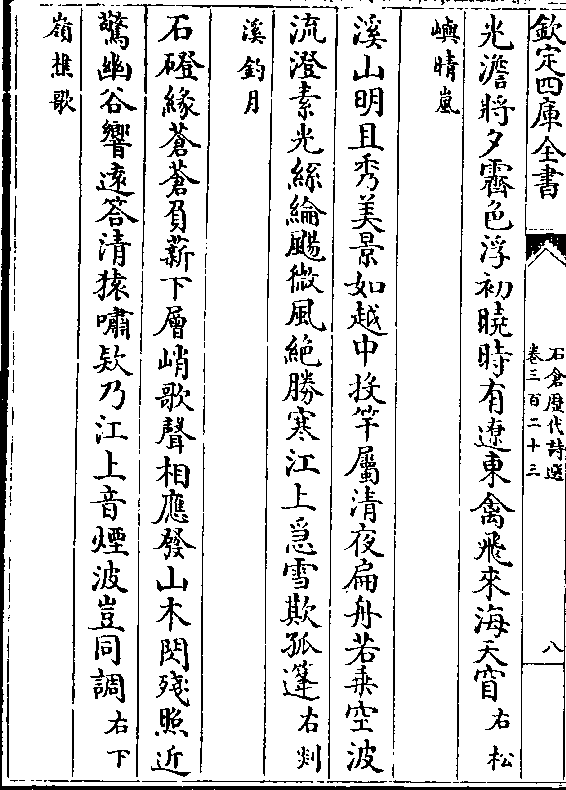 欽定四庫全書
石倉歷代詩選
卷三百二十三
八
光澹將夕霽色浮初曉時有遼東禽飛來海天窅右松
嶼晴嵐
溪山明且秀美景如越中投竿屬清夜扁舟若乗空波
流澄素光絲綸颺微風絶勝寒江上急雪欺孤篷右剡
溪釣月
石磴緣蒼蒼負薪下層峭歌聲相應發山木閃殘照近
驚幽谷響遠答清猿嘯欵乃江上音煙波豈同調右下
嶺樵歌